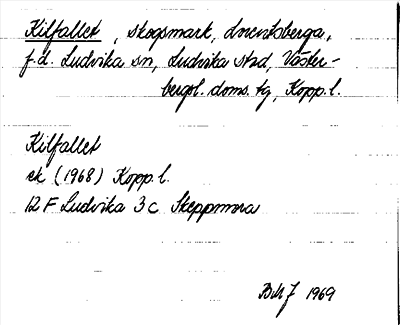 Kilfallet, skogsmark, Snevtsberga,
f.d. Ludvika sn, Ludvika stad, Väster-
bergsl. doms. tg, Kopp. l.
Kilfallet
ek (1968) Kopp. l.
12 F Ludvika 3 c Skeppmora
BMJ 1969